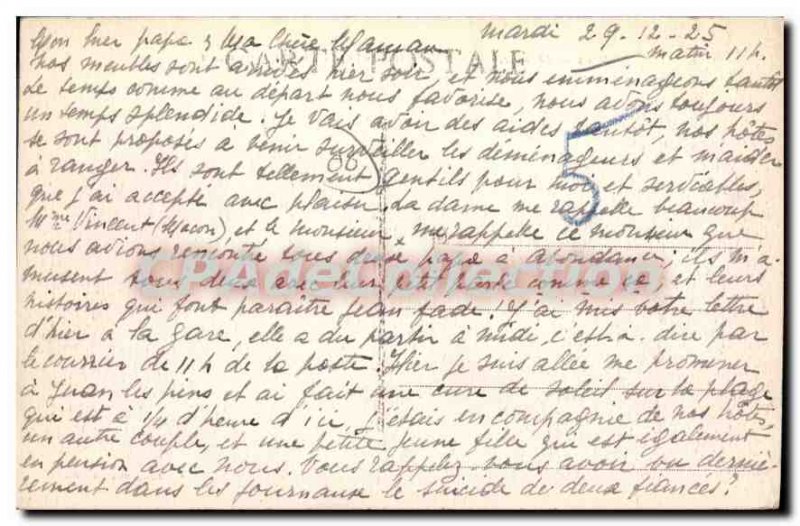 mardi 29-12-25
matin 11h.
Mon cher papa & Ma Chère Maman
CARTE POSTALE
nos meubles sont arrivés hier soir, et nous emménageons tantôt
Le temps comme au départ nous favorise, nous avons toujours
un temps splendide. Je vais avoir des aides tantôt, nos hôtes
se sont proposés à venir surveiller les déménageurs et m'aider
à ranger. Ils sont tellement gentils pour moi et serviables,
que j'ai accepté avec plaisir. La dame me rappelle beaucoup
Mme Vincent (Macon) et le monsieur me rappelle ce monsieur que
nous avions rencontré tous deux papa à Abondance, ils m'a-
musent tous deux avec leur petit et leurs
histoires qui font paraître Jean fade! J'ai mis votre lettre
d'hier à la gare, elle a du partir à midi, c'est-à-dire par
le courrier de 11h de la poste. Hier je suis allée me promener
à Juan les pins et ai fait une cure de soleil sur la plage
qui est à 1/4 d'heure d'ici, j'étais en compagnie de nos hôtes,
un autre couple, et une petite jeune fille qui est également
en pension avec nous. Vous rappelez-vous avoir vu derniè-
rement dans les journaux le suicide de deux fiancés?
86
5
CPAdeCollection.com